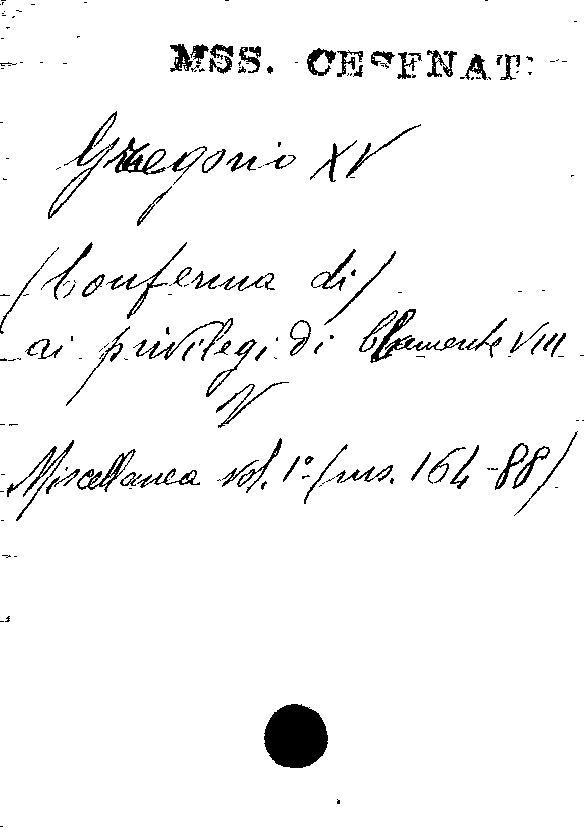 MSS. CESENAT.
Gregorio XV
(Conferma di)
ai privilegi di Clemente VIII
V
Miscellanea vol. 1º (ms. 164-88)